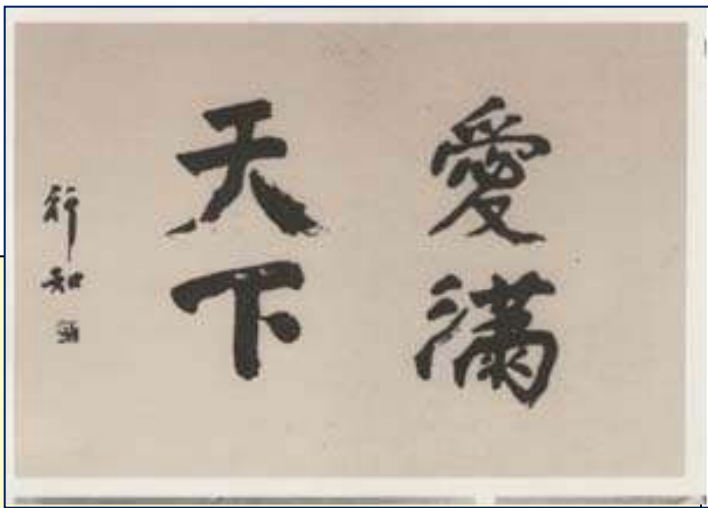 愛滿
天下
行知